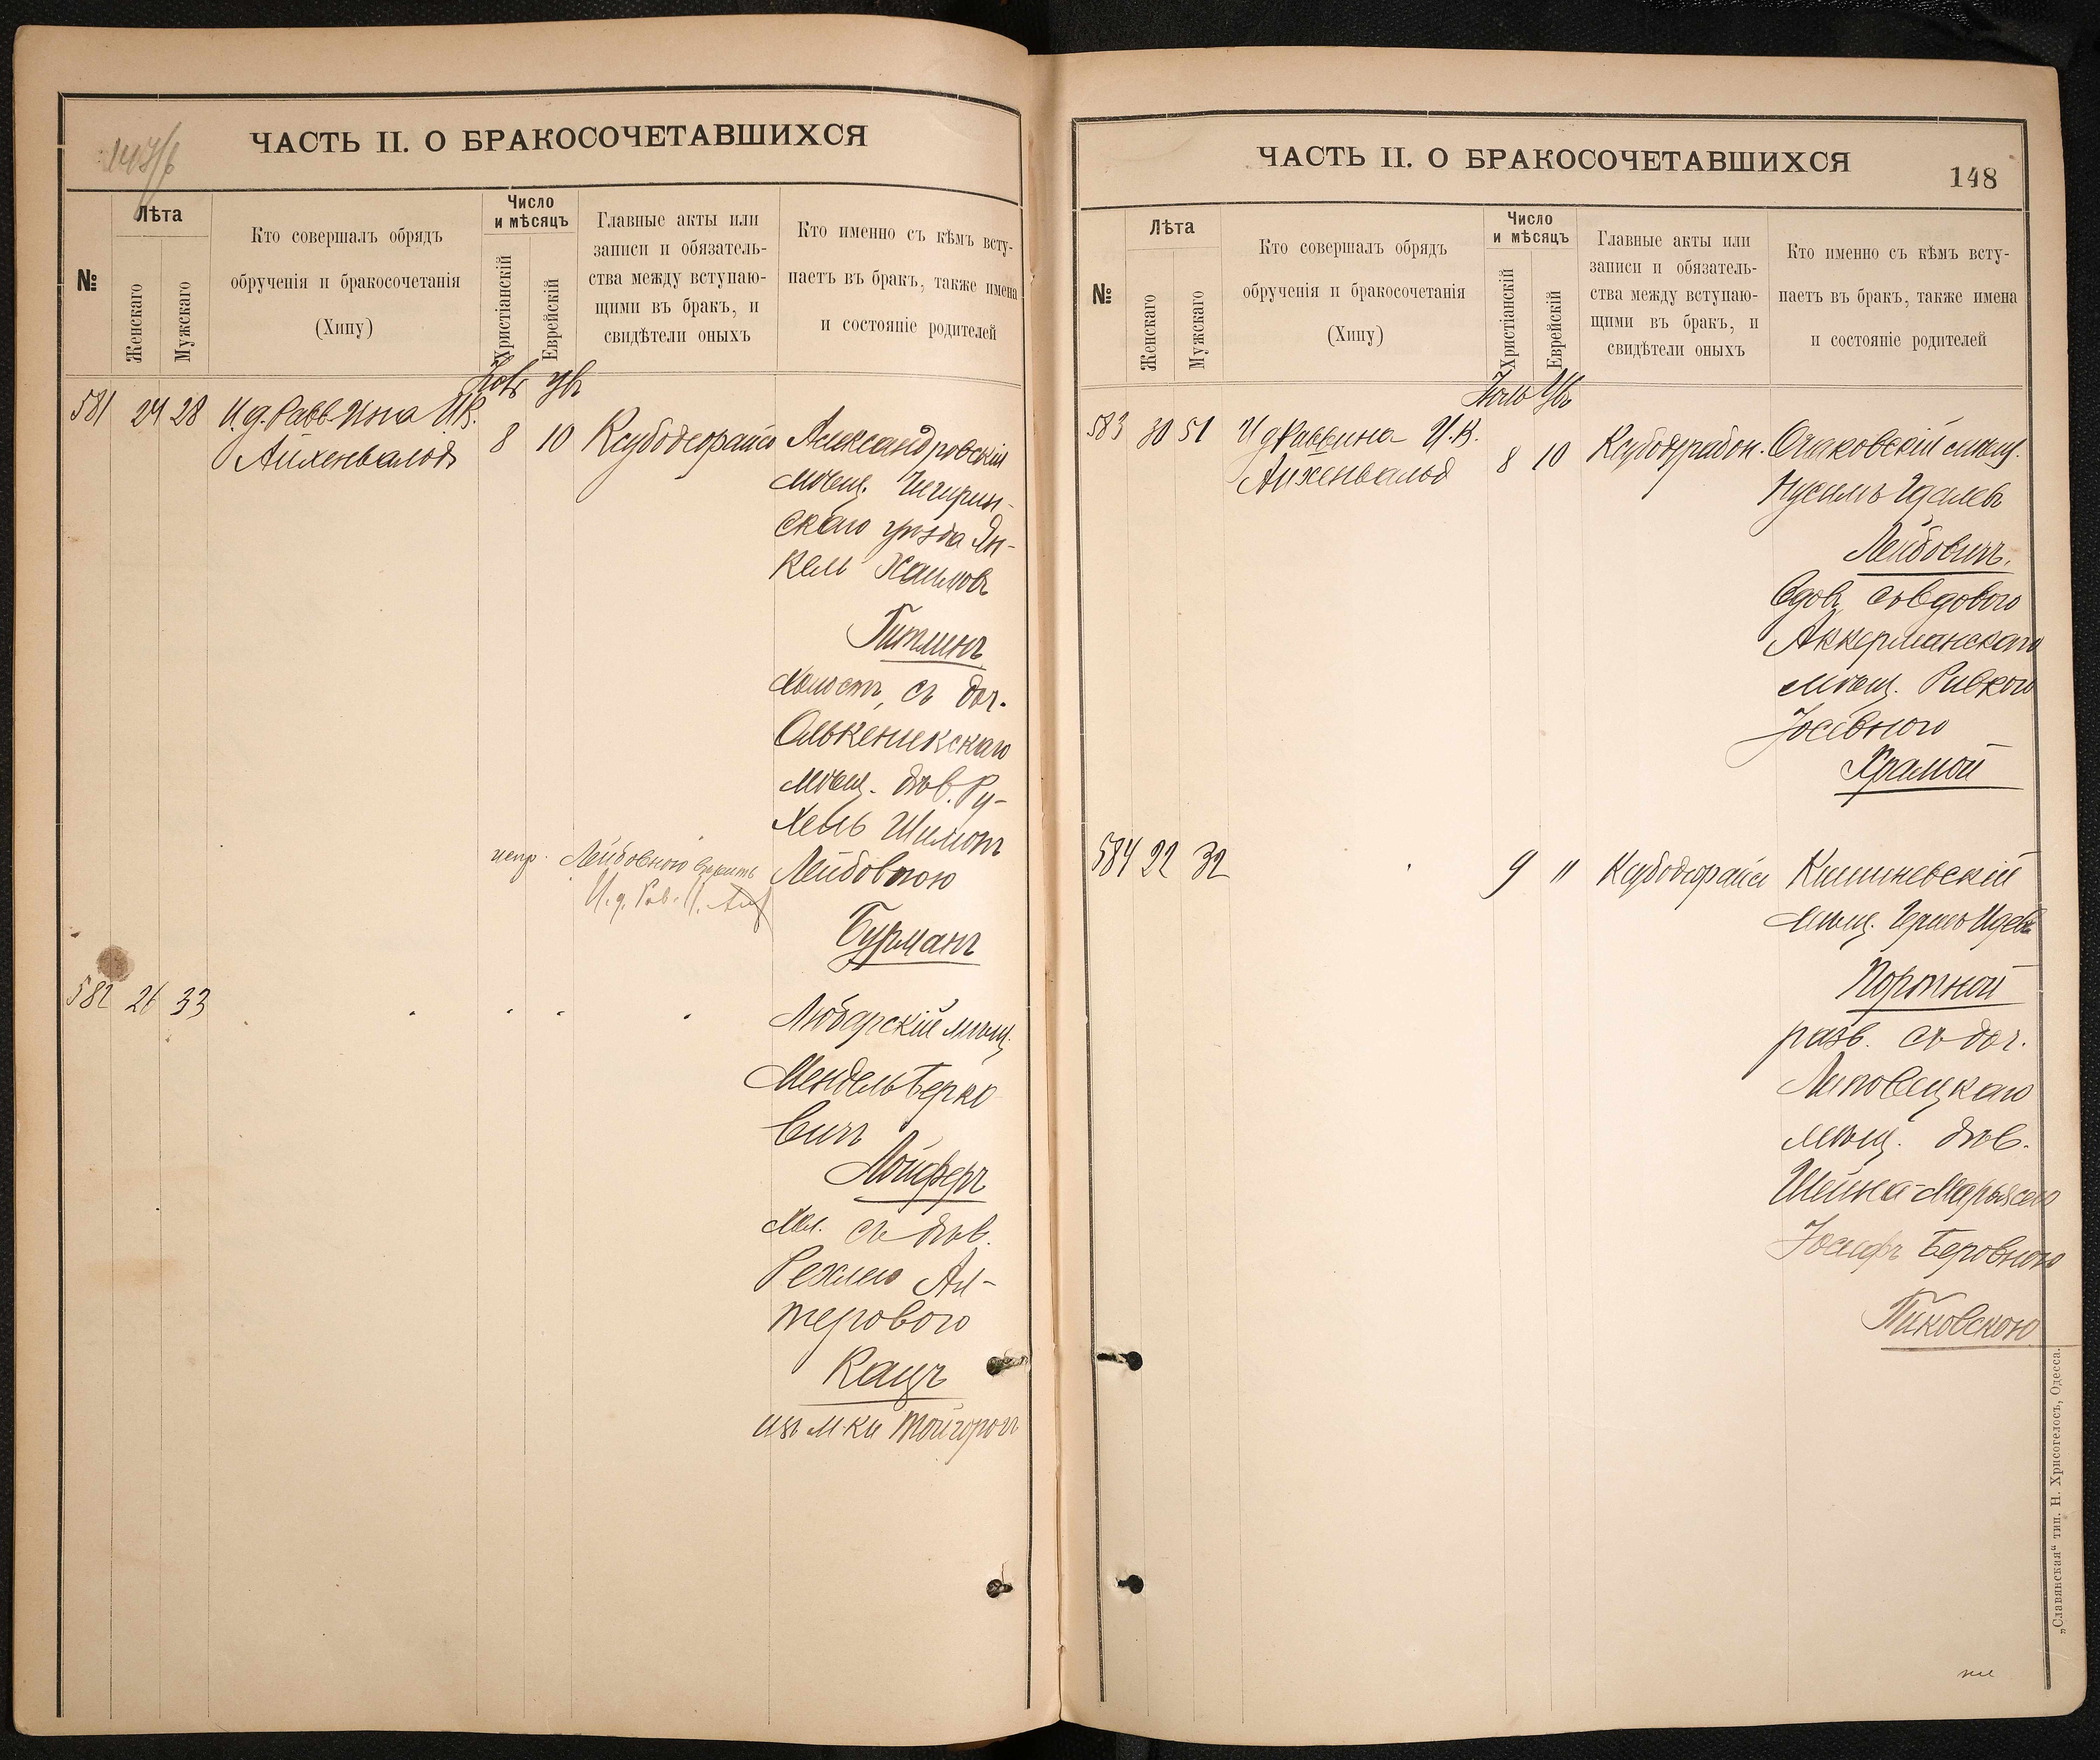 147/б
ЧАСТЬ II. О БРАКОСОЧЕТАВШИХСЯ
№
Лѣта
Женскаго
Мужскаго
Кто совершалъ обрядъ
обрученія и бракосочетанія
(Хипу)
Число
и мѣсяцъ
Христіанскій
Еврейскій
Главные акты или
записи и обязатель-
ства между вступаю-
щими въ бракъ, и
свидѣтели оныхъ
Кто именно съ кѣмъ всту-
паетъ въ бракъ, также имена
и состояніе родителей
581 24 28
И.д. Равв. И.К.
Айхенвальдъ
8 10
Александровскій
мѣщ. Чигирин-
скаго уѣзда Ян-
кель Хаимовъ
Гитлинъ
холостъ, съ доч.
Олькеникскаго
мѣщ. дѣв. Ру-
хель Шимонъ
Лейбовною
Бурманъ
испр. Лейбовною вѣрить
И.д. Рав.
582 26 33
Любарскій мѣщ.
Мендель Берко
вичъ
Лойферъ
хол. съ дѣв.
Рехлею Ал-
теровою
Кацъ
изъ м-ка
ЧАСТЬ II. О БРАКОСОЧЕТАВШИХСЯ
148
№
Лѣта
Женскаго
Мужскаго
Кто совершалъ обрядъ
обрученія и бракосочетанія
(Хипу)
Число
и мѣсяцъ
Христіанскій
Еврейскій
Главные акты или
записи и обязатель-
ства между вступаю-
щими въ бракъ, и
свидѣтели оныхъ
Кто именно съ кѣмъ всту-
паетъ въ бракъ, также имена
и состояніе родителей
583 30 51
И д Раввина И.К.
Айхенвальд
8 10
Очаковскій мѣщ.
Нусимъ Идалевъ
Лейбовичъ.
вдов. съ вдовою
Аккерманскаго
мѣщ. Ривкою
Іосевною
Храмой
584 22 32
9 11
Кишиневскій
мѣщ. Герш Идев
Портной
разв. съ доч.
Липовецкаго
мѣщ. дѣв.
Шейна-Марьясею
Іосифъ Беровною
Пиковскою
„Славянская“ тип. Н. Хрисогелосъ, Одесса.